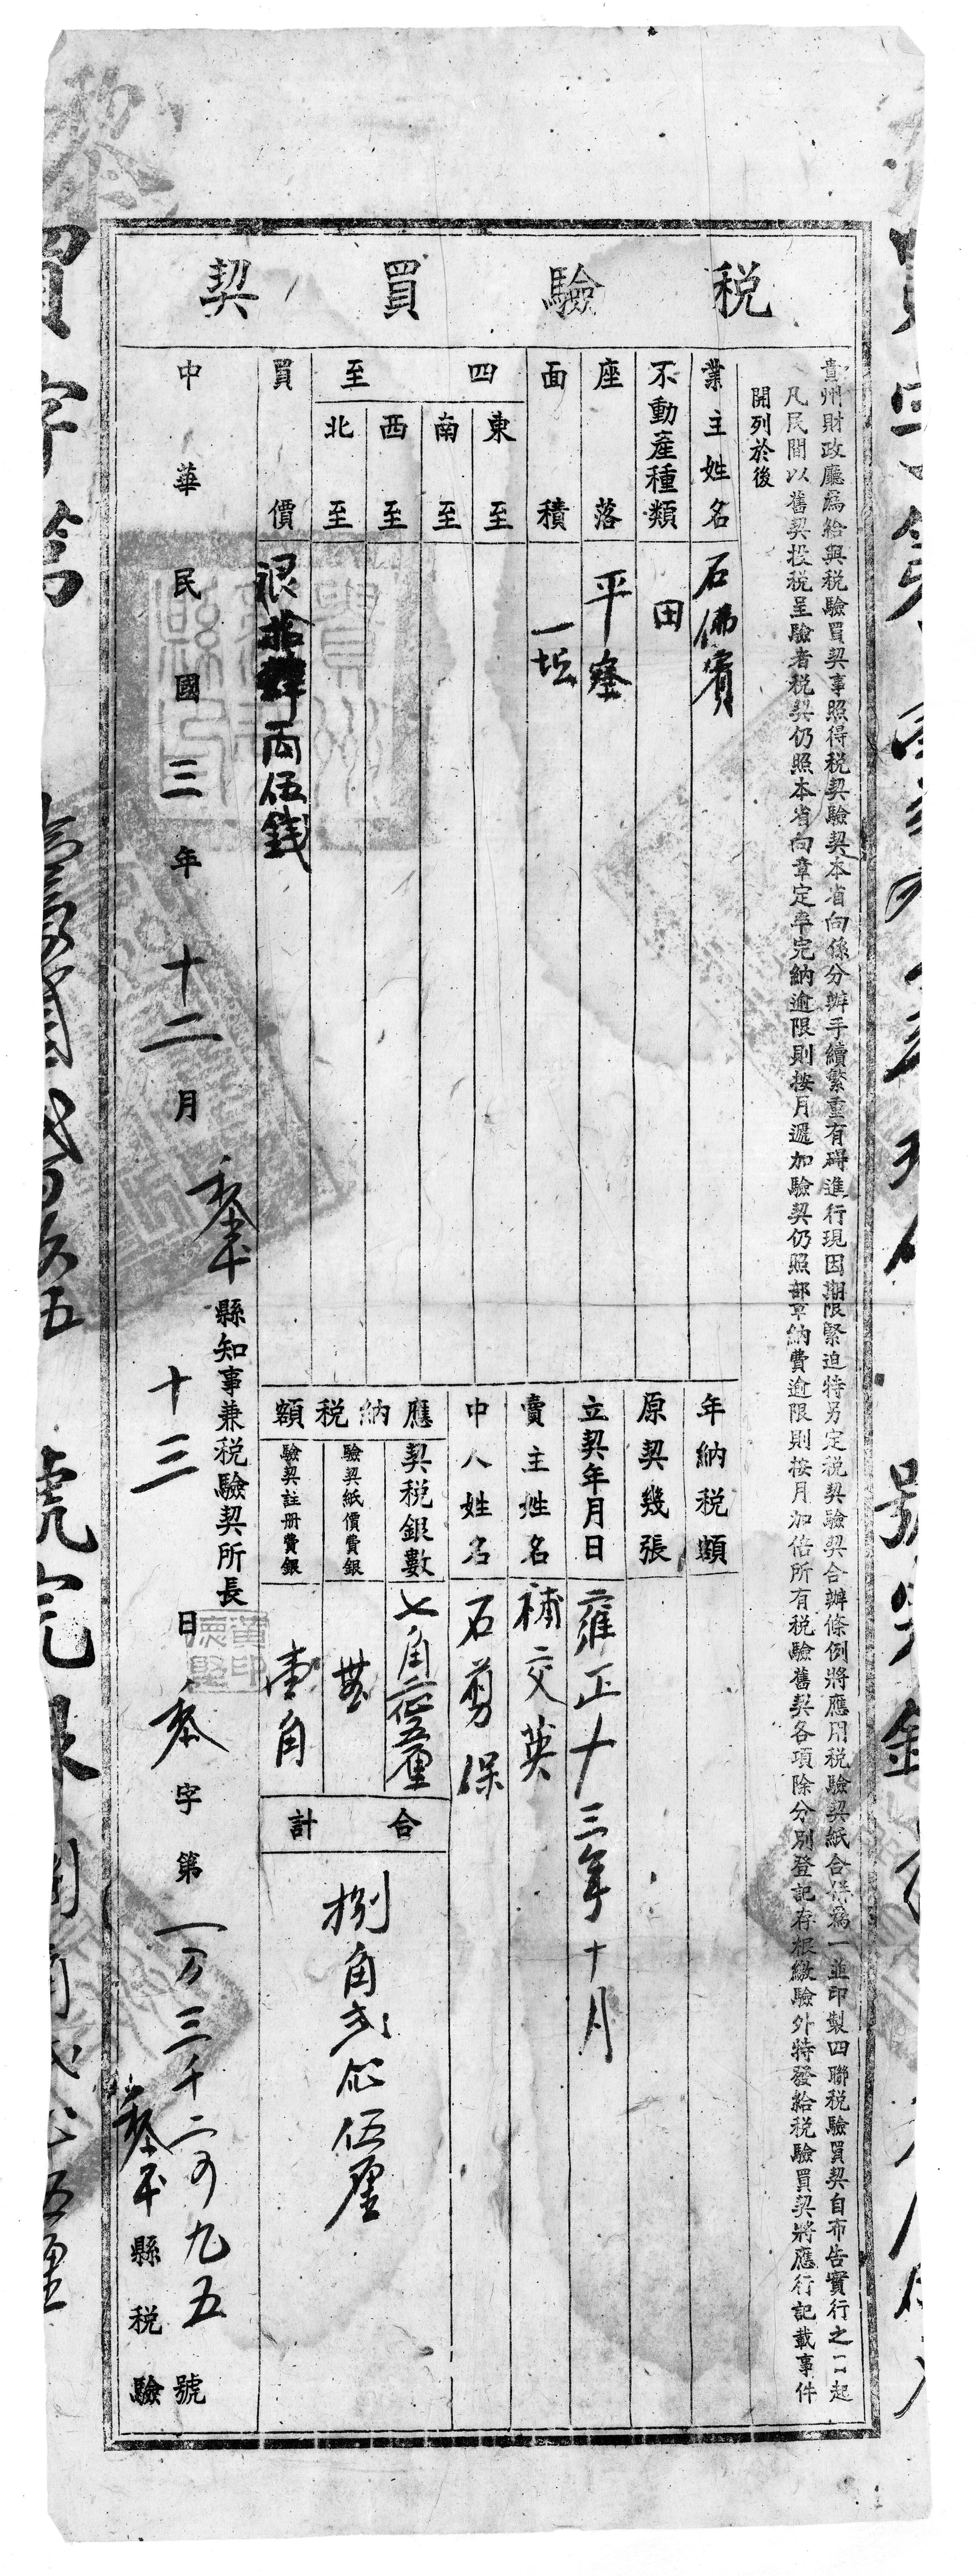 税驗買契
貴州財政廳為給與税驗買契事照得税契驗契本省向係分辦手續繁重有碍進行現因期限緊迫特另定税契驗契合辦條例將應用税驗契紙合併為一並印製四聯税驗買契自布告實行之日起
凡民間以舊契投税呈驗者税契仍照本省向章定率完納逾限則按月遞加驗契仍照部章納費逾限則按月加倍所有税驗舊契各項除分別登記存根繳驗外特發給税驗買契將應行記載事件
開列於後
業主姓名 石佛賓
不動產種類 田
座落 平
面積 一坵
四至
東至
南至
西至
北至
買價 銀拾肆兩伍錢
年納税額
原契幾張
立契年月日 雍正十三年十月
賣主姓名 補交英
中人姓名 石剪保
應納税額
契税銀數 七角二仙五厘
驗契紙價費銀
驗契註册費銀 壹角
合計 捌角弍仙伍厘
中華民國三年十二月十三日 黎字第一万三千二百九五號
黎平縣知事兼税驗契所長
黎平縣税驗